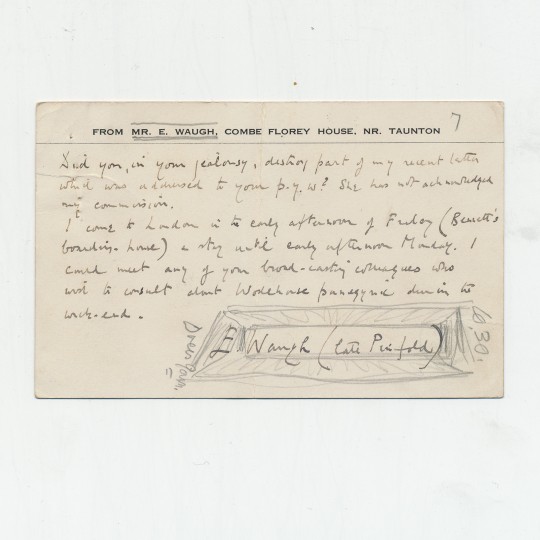 7
FROM MR. E. WAUGH, COMBE FLOREY HOUSE, NR. TAUNTON
Did you, in your jealousy, destroy part of my recent letter
which was addressed to your p.y.w? She has not acknowledged
my commission.
I come to London in the early afternoon of Friday (Bennett's
boarding-house) & stay until early afternoon Monday. I
could meet any of your broad-casting colleagues who
wish to consult about Wodehouse panegyric during the
week-end.
E Waugh (late Pinfold)
6.30.